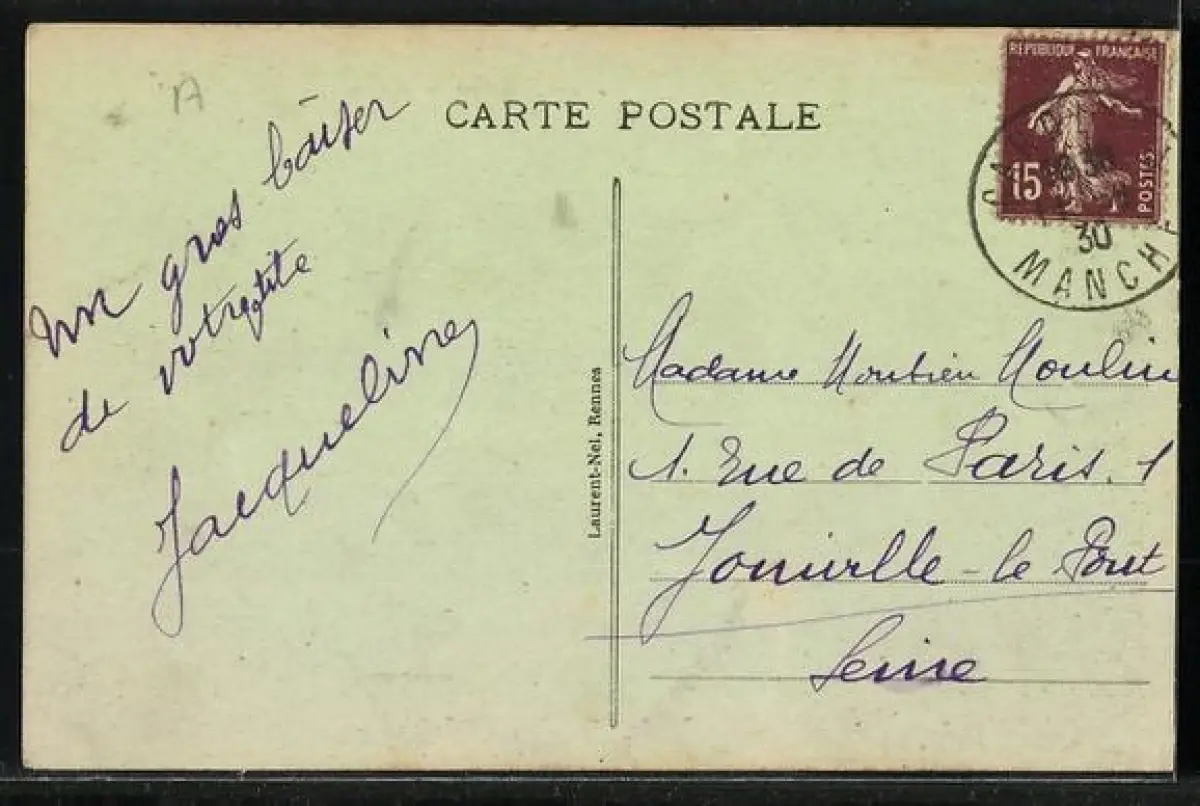 CARTE POSTALE
REPUBLIQUE FRANÇAISE
15
POSTES
30
MANCHE
Un gros baiser
de votre ptite
Jacqueline
Laurent-Nel, Rennes
Madame Moulin
1. Rue de Paris. 1
Joinville-le Pont
Seine